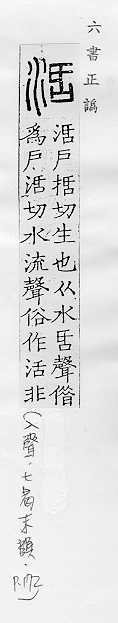 六書正譌
𣴠
𣴠戶括切生也从水𠯑聲借
爲戶𣴠切水流聲俗作活非
(入聲.七曷末韻.P.172)